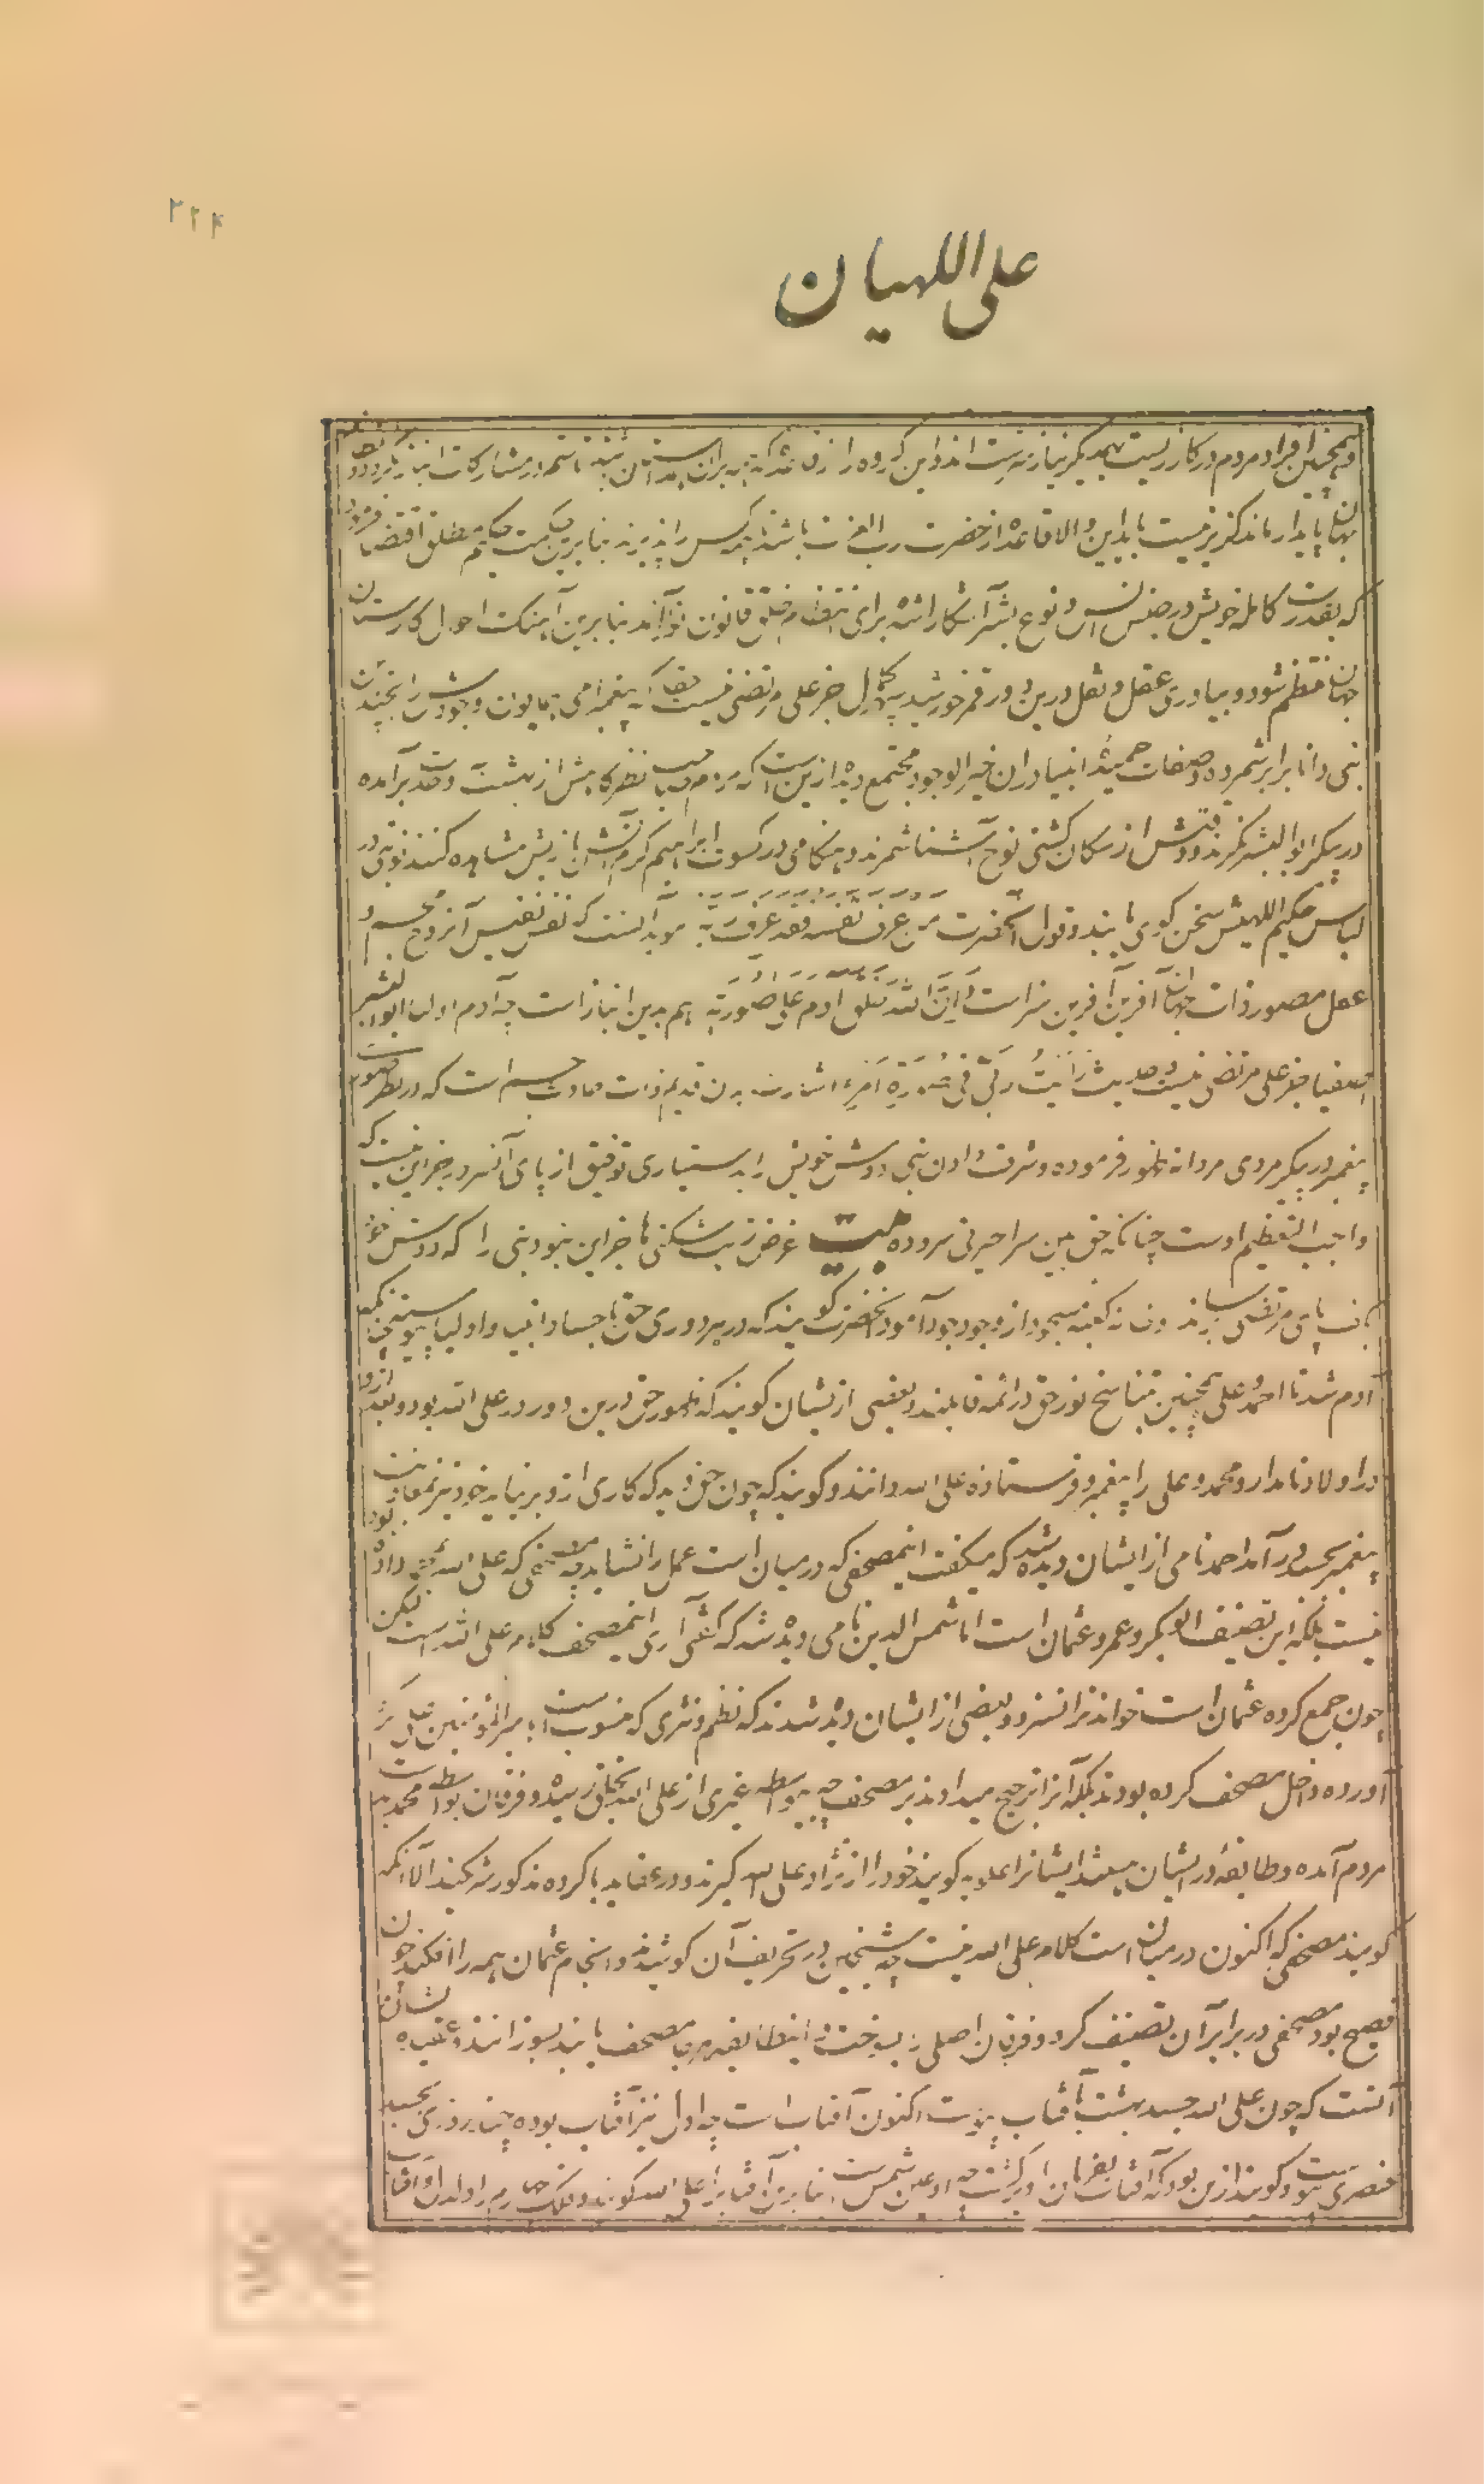 ۲۲۴
علی اللهیان
وهمچنین افراد مردم در کار زیست بهمدیگر نیازمند است
جهان پایدار ماند گزیر نیست باید این والا قاعده از حضرت رب العزت باشد تا همه کس را پذیرند بنابرین حکمت حکیم مطلق اقتضا فرمود
که بقدرت کامله خویش در جنس انس و نوع بشر آشکارا شده برای انتظام خلق قانون نو آراند بنابرین احوال کارستان
جهان منتظم شود و بیاوری عقل و نقل درین دور قمر خورشید سپهر کمال جز علی مرتضی نیست چنانکه پیغمبر امی همایون وجودش را بچندین
نبی دانا برابر شمرده و صفات حمیدهٔ انبیا در ان خیر الوجود مجتمع دیده ازین است که مردم نظر گاهیش از بهشت وحدت برآمده
در پیکر ابو البشر نگرند و وقتش از سکان کشتی نوح آشنا شمرند و هنگامی در کسوت ابراهیم گرم آتش بازیش مشاهده کنند نوبتی در
لباس حکیم اللهیش سخن گوی یابند و قول آنحضرت من عرف نفسه فقد عرف ربه مؤید آنست که نفس نفیس آن روح مجسم و
عقل مصور ذات جهان آفرین آفرین سزاست و ان الله خلق ادم علی صورته هم بدین انباز است چه آدم اول ابو البشر
اصفیا جز علی مرتضی نیست و حدیث رأیت ربی فی صورة امرء اشارت بدان قدیم ذات حادث جسم است که در نظر
پیغمبر در پیکر مردی مردانه ظهور فرموده و شرف دادن نبی دوش خویش را بدستیاری توفیق از پای آن سرور جز این نیست که
واجب التعظیم اوست چنانکه حق بین سراحیرتی سروده بیت غرض ز بت شکنی ها جز این نبود نبی را که دوش خود
بکف پای مرتضی برساند و خانه کعبه مسجود از وجود جود آمود آنحضرت گویند که در هر دوری حق باجساد انبیا و اولیا پیوستی چنانکه
آدم شد تا احمد و علی همچنین بتناسخ نور حق در ائمه قایلند و بعضی ازیشان گویند که ظهور حق درین دور در علی الله بود و بعد از او
در اولاد نامدار و محمد و علی را پیغمبر و فرستاده علی الله دانند و گویند که چون حق دید که کاری ازو برنیاید خود نیز بمعاونت
پیغمبر بجسد در آمد احمد نامی از ایشان دیده شد که میگفت این مصحفی که در میان است عمل را نشاید چه مصحفی که علی الله بمحمد داده بود
نیست بلکه این تصنیف ابو بکر و عمر و عثمان است اما شمس الدین نامی دیده شد که گفتی آری این مصحف کلام علی الله است لیکن
چون جمع کرده عثمان است خواندن را نسزد و بعضی از ایشان دیده شدند که نظم و نثری که منسوب است به امیر المؤمنین علی گرد
آورده داخل مصحف کرده بودند بلکه آنرا ترجیح میدادند بر مصحف چه بیواسطه غیری از علی الله بخلق رسیده و فرقان بواسطه محمد بدست
مردم آمده و طایفهٔ در ایشان میباشند ایشانرا علویه گویند خود را از نژاد علی الله گیرند و در عقاید با گروه مذکور شریکند الا آنکه
گویند مصحفی که اکنون در میان است کلام علی الله نیست چه شیخین در تحریف آن کوشیدند و انجام عثمان همه را افکند چون
فصیح بود مصحفی در برابر آن تصنیف کرد و فرقان اصلی را بسوخت و این طایفه هر جا مصحف یابند بسوزانند و عقیده ایشان
آنست که چون علی الله جسد بهشت بآفتاب پیوست اکنون آفتاب است چه اول نیز آفتاب بوده چند روزی بجسد
عنصری پیوست و گویند ازین بود که آفتاب بفرمان او برگشت چه او عین شمس است بنابرین آفتاب را علی الله گویند و فلک چهارم را دلدل و آفتاب